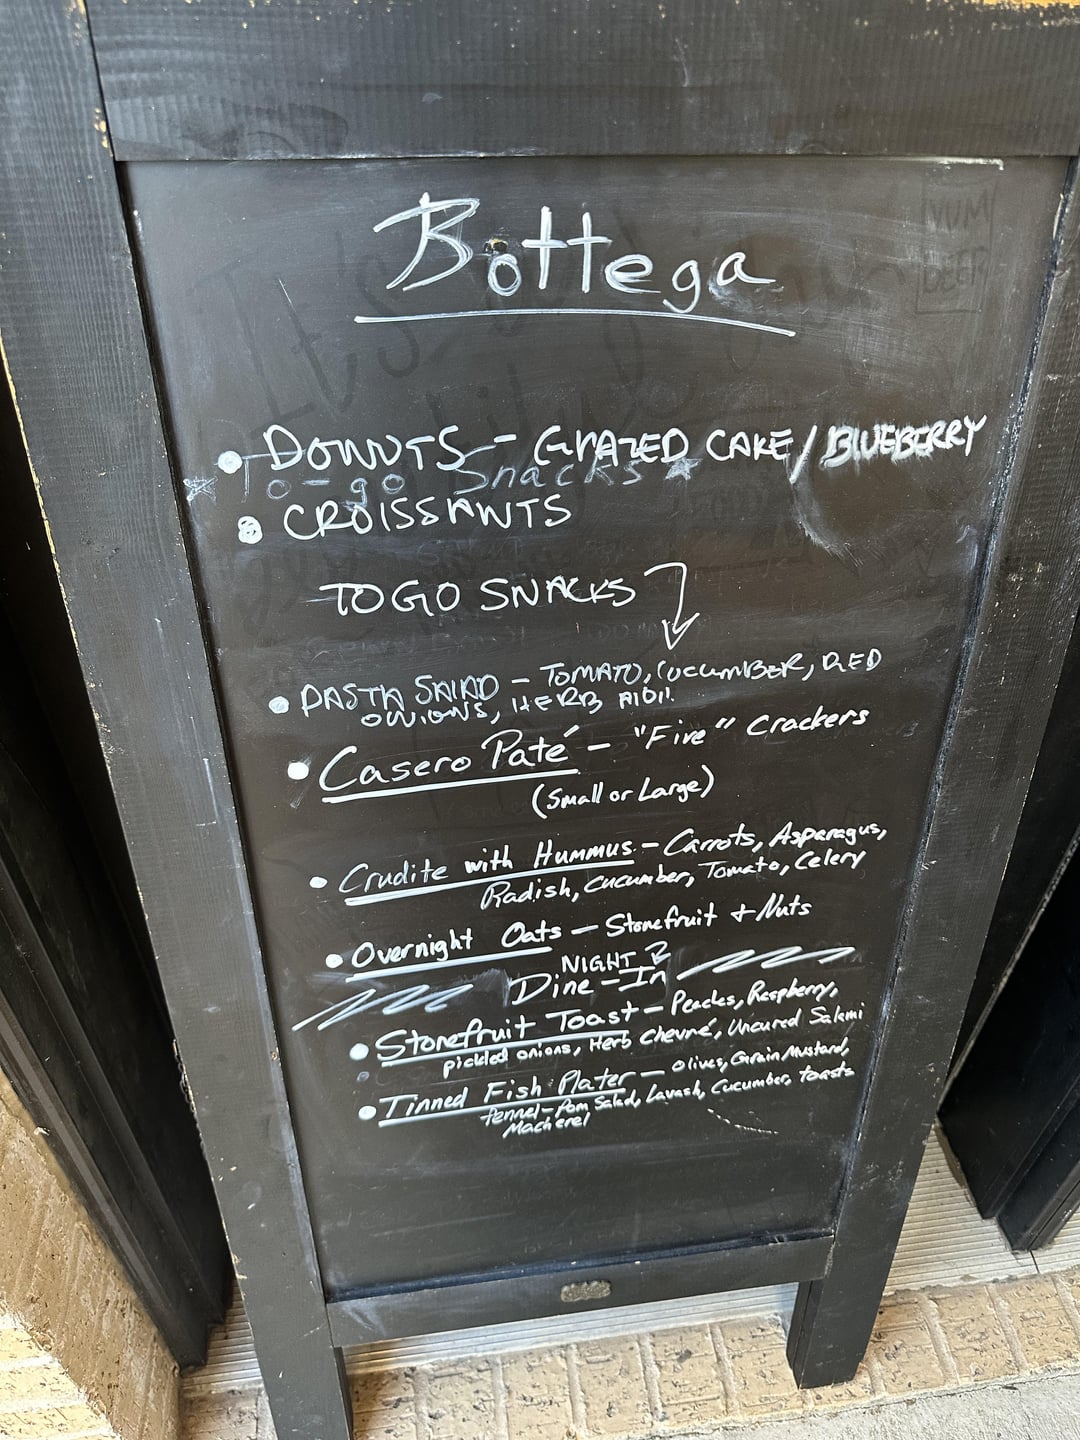 Bottega
• DONUTS - GLAZED CAKE / BLUEBERRY
To-go Snacks
• CROISSANTS
TO GO SNACKS
• PASTA SALAD - TOMATO, CUCUMBER, RED
ONIONS, HERB AIOLI
• Casero Paté - "Fire" Crackers
(Small or Large)
• Crudite with Hummus - Carrots, Asparagus,
Radish, Cucumber, Tomato, Celery
• Overnight Oats - Stonefruit + Nuts
NIGHT
Dine-In
• Stonefruit Toast - Peaches, Raspberry,
pickled onions, Herb Chevré, Uncured Salami
• Tinned Fish Plater - Olives, Grain Mustard,
fennel-Pom Salad, Lavash, Cucumber, toasts
Mackerel